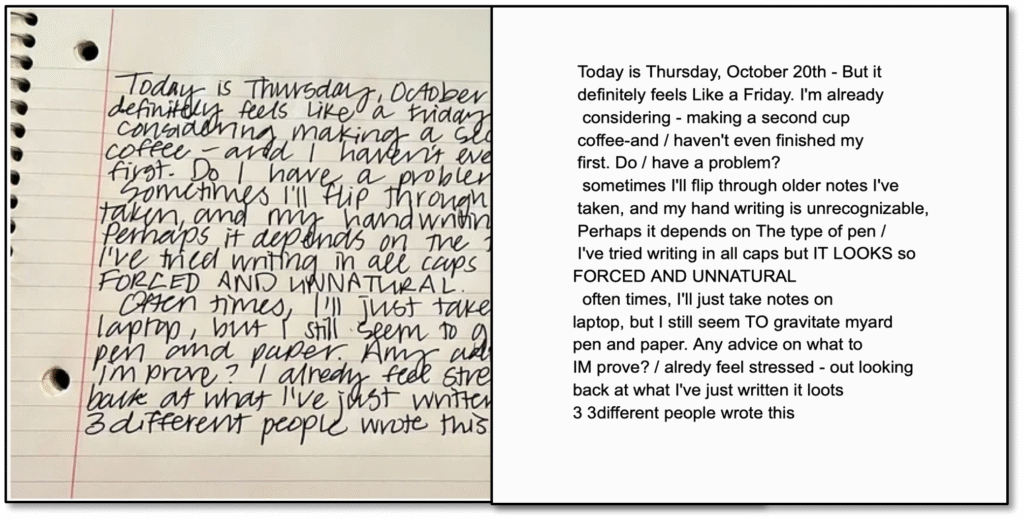 Today is Thursday, October
definitely feels Like a Friday
considering making a sec
coffee - and I haven't eve
first. Do I have a problem
Sometimes I'll flip through
taken, and my handwritin
Perhaps it depends on the
I've tried writing in all caps
FORCED AND UNNATURAL.
Often times, I'll just take
laptop, but I still seem to g
pen and paper. Any ad
improve? I alredy feel stre
back at what I've just written
3 different people wrote this
Today is Thursday, October 20th - But it
definitely feels Like a Friday. I'm already
considering - making a second cup
coffee-and / haven't even finished my
first. Do / have a problem?
sometimes I'll flip through older notes I've
taken, and my hand writing is unrecognizable,
Perhaps it depends on The type of pen /
I've tried writing in all caps but IT LOOKS so
FORCED AND UNNATURAL
often times, I'll just take notes on
laptop, but I still seem TO gravitate myard
pen and paper. Any advice on what to
IM prove? / alredy feel stressed - out looking
back at what I've just written it loots
3 3different people wrote this